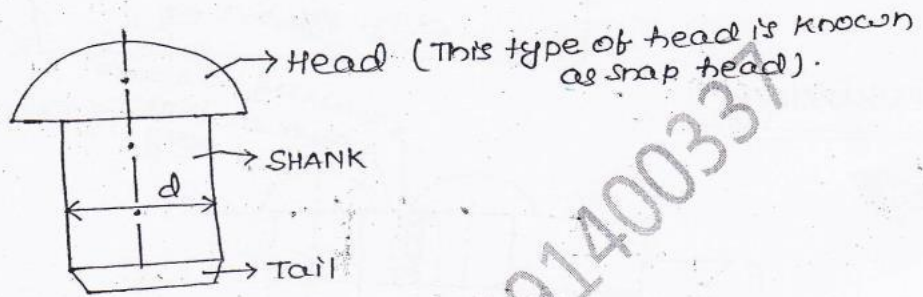 Head (This type of head is known
as snap head).
SHANK
d
Tail
91400337